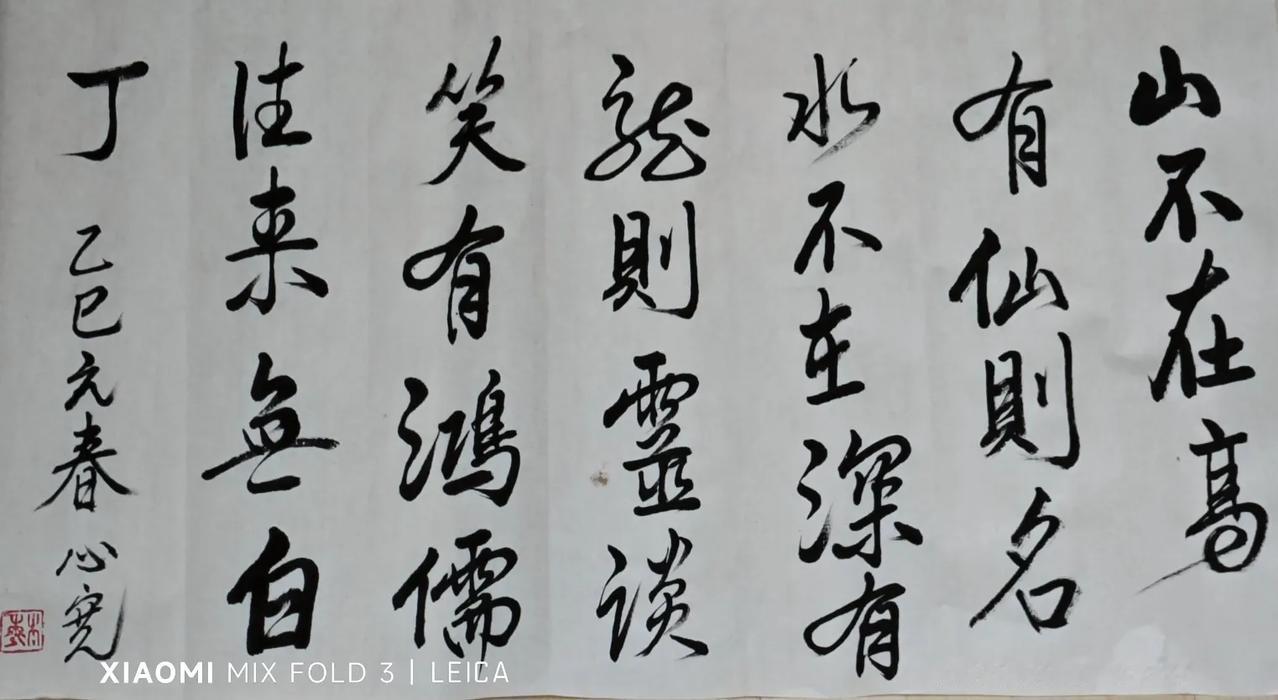 山不在高
有仙則名
水不在深有
龍則靈談
笑有鴻儒
往来無白
丁 乙巳元春 心寬
XIAOMI MIX FOLD 3 | LEICA